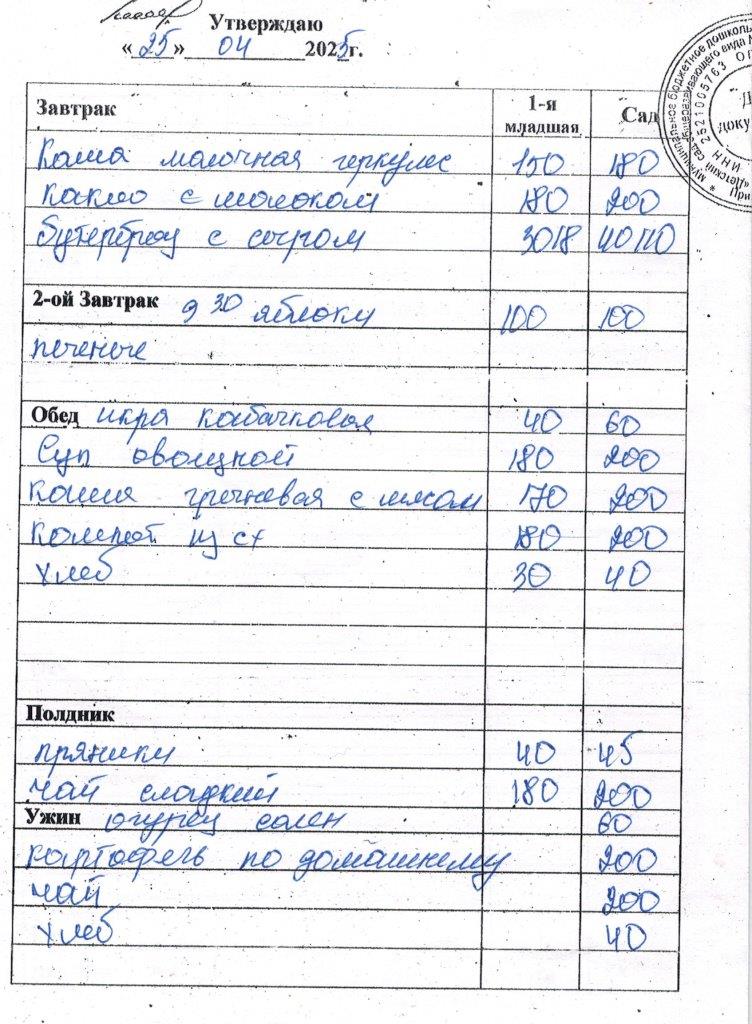 Утверждаю
«25» 04 2025г.
Завтрак 1-я младшая Сад
Каша молочная геркулес 150 180
какао с молоком 180 200
бутерброд с сыром 30/8 40/10
2-ой Завтрак 9 30 яблоки 100 100
печенье
Обед икра кабачковая 40 60
Суп овощной 180 200
Каша гречневая с мясом 170 200
Компот из сх 180 200
хлеб 30 40
Полдник
пряники 40 45
чай сладкий 180 200
Ужин огурец солен 60
картофель по домашнему 200
чай 200
хлеб 40
муниципальное бюджетное дошколь
общеразвивающего вида
ИНН 2521005763
докум